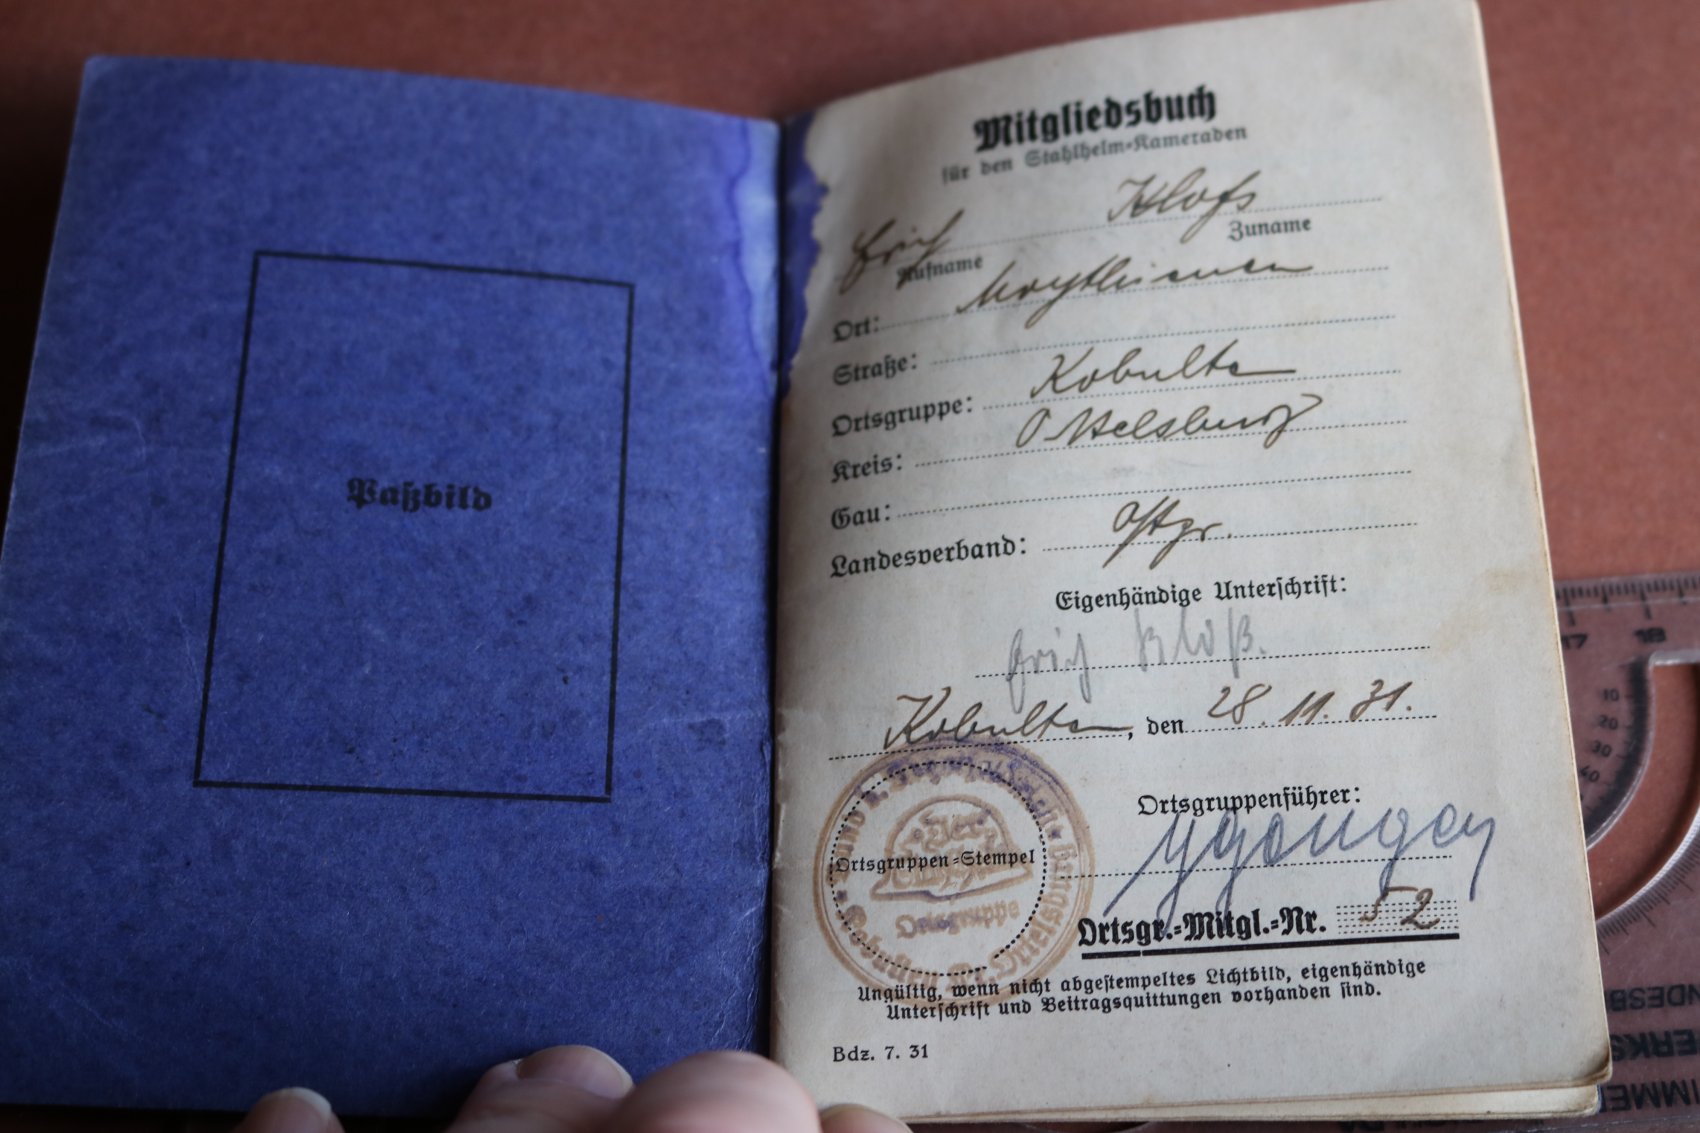 Paßbild
Mitgliedsbuch
für den Stahlhelm-Kameraden
Erich Kloß
Rufname Zuname
Ort:
Straße:
Ortsgruppe: Kobulten
Kreis: Ortelsburg
Gau:
Landesverband: Ostpr.
Eigenhändige Unterschrift:
Erich Kloß.
Kobulten, den 28.11.31.
Ortsgruppenführer:
Ortsgruppen-Stempel
Der
Stahlhelm
Ortsgruppe
Ortsgr.-Mitgl.-Nr. 52
Ungültig, wenn nicht abgestempeltes Lichtbild, eigenhändige
Unterschrift und Beitragsquittungen vorhanden sind.
Bdz. 7. 31
17 18
10
20
30
40